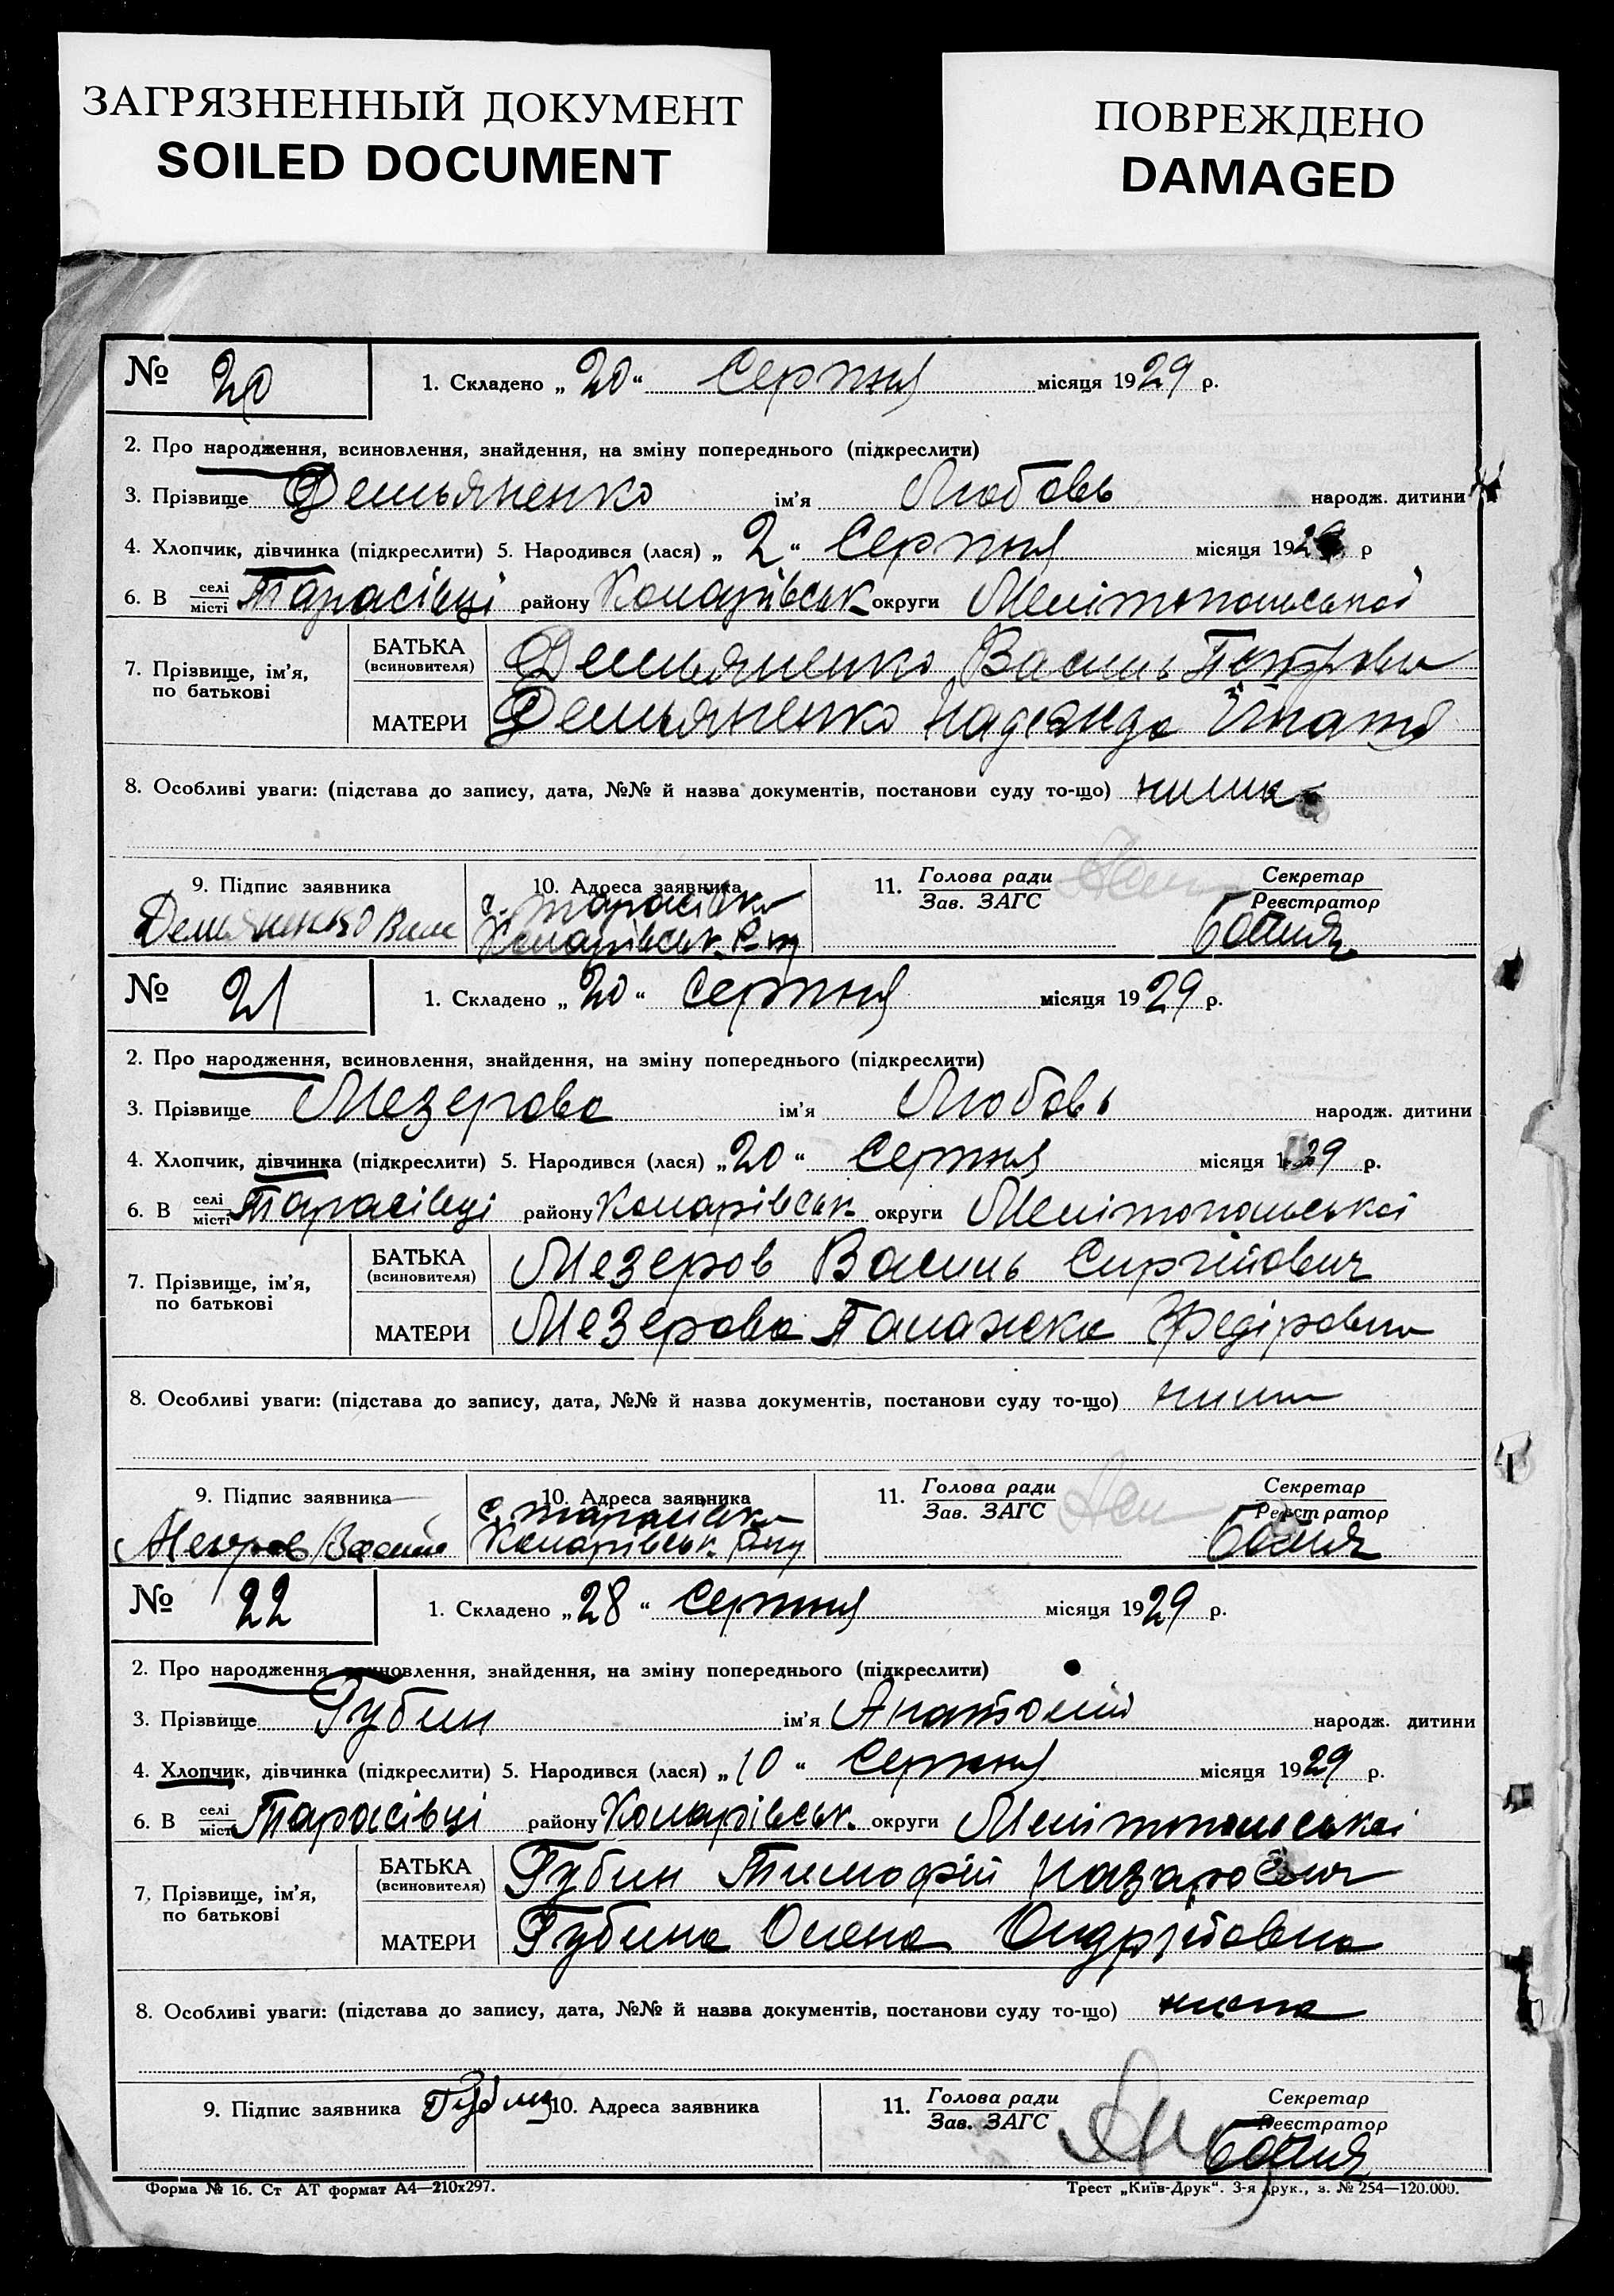 ЗАГРЯЗНЕННЫЙ ДОКУМЕНТ
SOILED DOCUMENT
ПОВРЕЖДЕНО
DAMAGED
№ 20 1. Складено „ 20 “ Серпня місяця 1929 р.
2. Про народження, всиновлення, знайдення, на зміну попереднього (підкреслити)
3. Прізвище Демьяненко ім'я Любовь народж. дитини
4. Хлопчик, дівчинка (підкреслити) 5. Народився (лася) „ 2 “ Серпня місяця 1929 р
6. В селі/місті Тарасівці району Комарівськ округи Мелітопольської
7. Прізвище, ім'я, по батькові
БАТЬКА (всиновителя) Демьяненко Василь Петрови
МАТЕРИ Демьяненко Надежда
8. Особливі уваги: (підстава до запису, дата, №№ й назва документів, постанови суду то-що)
9. Підпис заявника 10. Адреса заявника 11. Голова ради / Зав. ЗАГС Секретар / Реєстратор
Демяненко с. Тарасівка
Комарівськ. Р-ну
№ 21 1. Складено „ 20 “ Серпня місяця 1929 р.
2. Про народження, всиновлення, знайдення, на зміну попереднього (підкреслити)
3. Прізвище Мезерова ім'я Любовь народж. дитини
4. Хлопчик, дівчинка (підкреслити) 5. Народився (лася) „ 20 “ Серпня місяця 1929 р.
6. В селі/місті Тарасівці району Комарівськ округи Мелітопольської
7. Прізвище, ім'я, по батькові
БАТЬКА (всиновителя) Мезеров Василь Сиргійович
МАТЕРИ Мезерова Палажка Федіровна
8. Особливі уваги: (підстава до запису, дата, №№ й назва документів, постанови суду то-що)
9. Підпис заявника 10. Адреса заявника 11. Голова ради / Зав. ЗАГС Секретар / Реєстратор
с. Тарасівка
Комарівськ. Р-ну
№ 22 1. Складено „ 28 “ Серпня місяця 1929 р.
2. Про народження, всиновлення, знайдення, на зміну попереднього (підкреслити)
3. Прізвище Губин ім'я Анатолій народж. дитини
4. Хлопчик, дівчинка (підкреслити) 5. Народився (лася) „ 10 “ Серпня місяця 1929 р.
6. В селі/місті Тарасівці району Комарівськ. округи Мелітопольської
7. Прізвище, ім'я, по батькові
БАТЬКА (всиновителя) Губин Тимофій Назарович
МАТЕРИ Губина Олена Ондрійовна
8. Особливі уваги: (підстава до запису, дата, №№ й назва документів, постанови суду то-що)
9. Підпис заявника Губин 10. Адреса заявника 11. Голова ради / Зав. ЗАГС Секретар / Реєстратор
Форма № 16. Ст АТ формат А4—210x297. Трест „Київ-Друк“. 3-я друк., з. № 254—120.000.